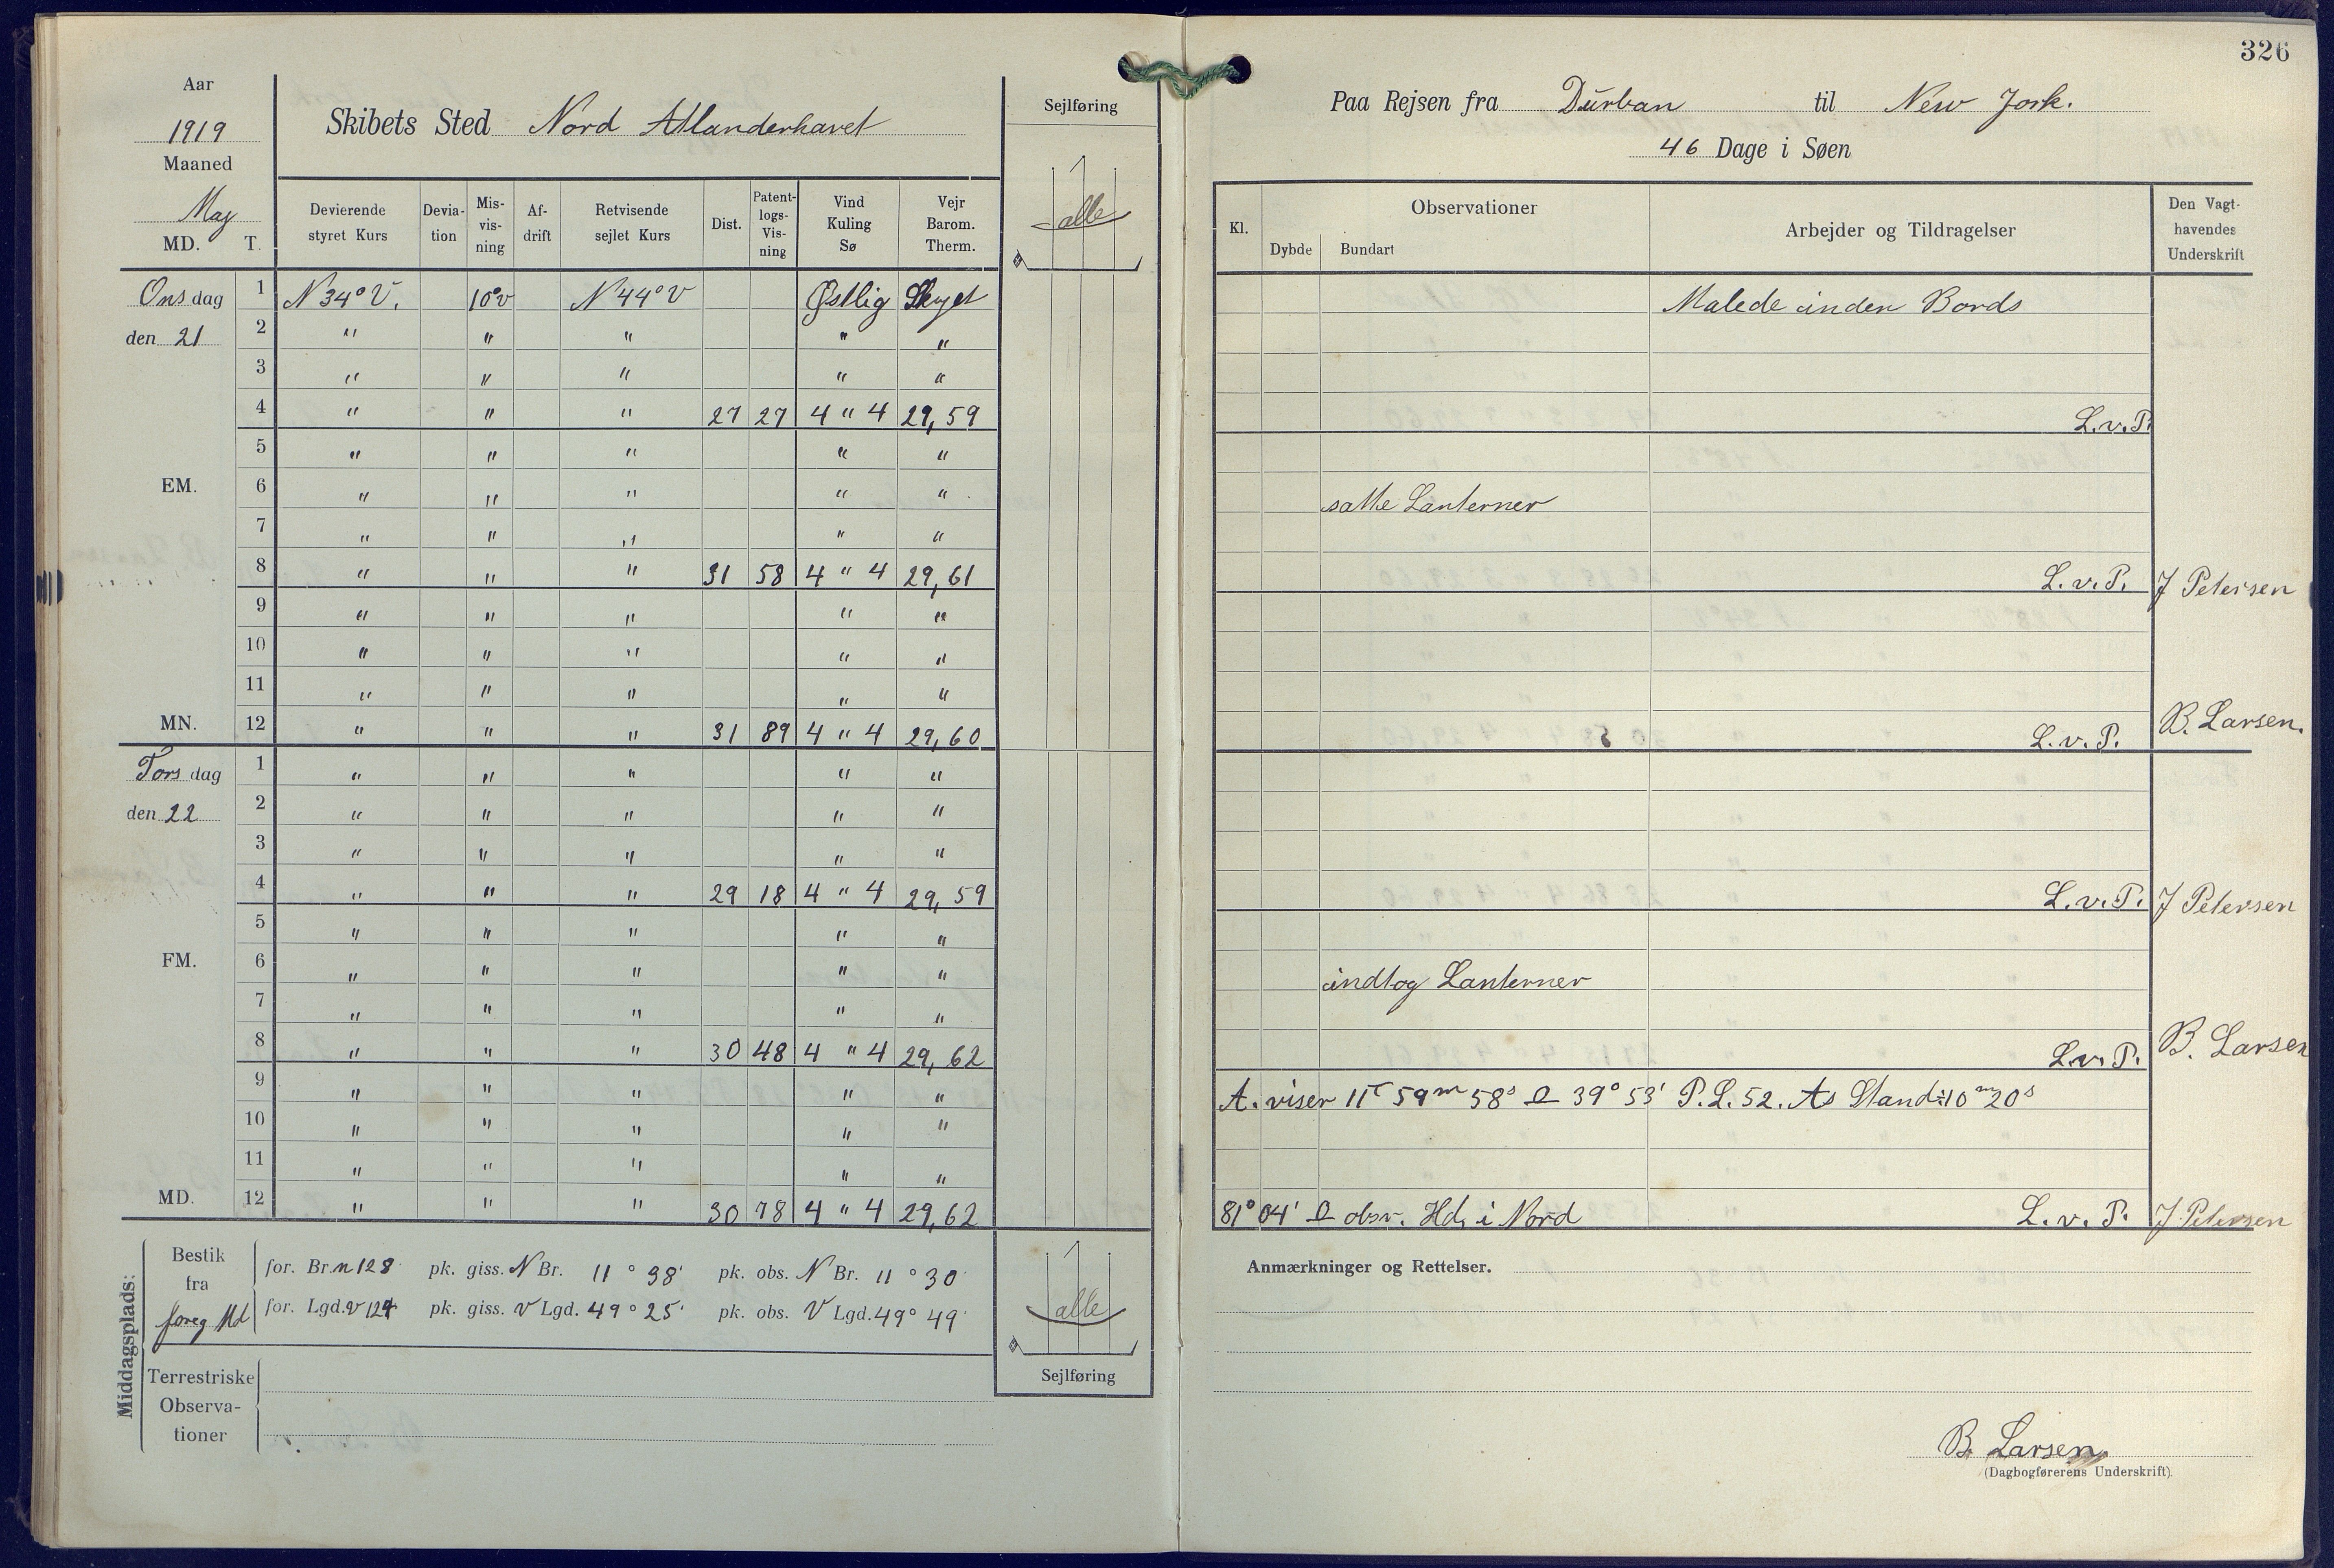 326
Aar
1919
Maaned
Maj
MD. T.
Skibets Sted Nord Atlanderhavet
Sejlføring
alle
Devierende styret Kurs
Devia-tion
Mis-vis-ning
Af-drift
Retvisende sejlet Kurs
Dist.
Patent-logs-Vis-ning
Vind Kuling Sø
Vejr Barom. Therm.
Onsdag 1 N 34° V. 10°v N 44° V Østlig Skyet
den 21 2 " " " " "
3 " " " " "
4 " " " 27 27 4 " 4 29,59
5 " " " " "
EM. 6 " " " " "
7 " " " " "
8 " " " 31 58 4 " 4 29,61
9 " " " " "
10 " " " " "
11 " " " " "
MN. 12 " " " 31 89 4 " 4 29,60
Torsdag 1 " " " " "
den 22 2 " " " " "
3 " " " " "
4 " " " 29 18 4 " 4 29,59
5 " " " " "
FM. 6 " " " " "
7 " " " " "
8 " " " 30 48 4 " 4 29,62
9 " " " " "
10 " " " " "
11 " " " " "
MD. 12 " " " 30 78 4 " 4 29,62
Middagsplads:
Bestik fra foreg Md
for. Br. n 128 pk. giss. N Br. 11° 38' pk. obs. N Br. 11° 30'
for. Lgd. v 124 pk. giss. V Lgd. 49° 25' pk. obs. V Lgd. 49° 49'
Terrestriske
Observa-
tioner
alle
Sejlføring
Paa Rejsen fra Durban til New York.
46 Dage i Søen
Kl.
Observationer
Dybde Bundart
Arbejder og Tildragelser
Den Vagt-havendes Underskrift
Malede inden Bords
L.v.P.
satte Lanterner
L.v.P. J Petersen
L.v.P. B. Larsen.
L.v.P. J Petersen
indtog Lanterner
L.v.P. B. Larsen
A. viser 11 59m 58s 39° 53' P.L. 52. As Stand ÷ 10m 20s
81° 04' obsr. Hd. i Nord L.v.P. J. Petersen
Anmærkninger og Rettelser.
B. Larsen
(Dagbogførerens Underskrift).